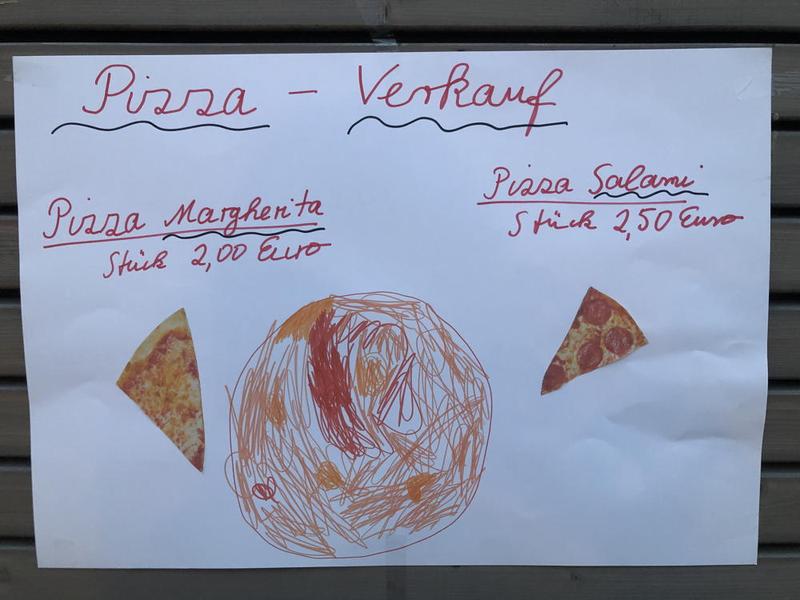 Pizza - Verkauf
Pizza Margherita
Stück 2,00 Euro
Pizza Salami
Stück 2,50 Euro